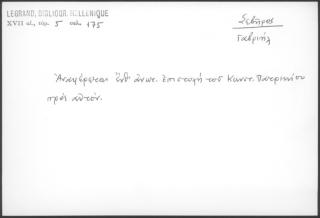 LEGRAND, BIBLIOGR. HELLENIQUE
XVII αἰ., τόμ. 5 σελ. 175
Σεβῆρος
Γαβριήλ
Ἀναφέρεται ἐνθ' ἄνωτ. ἐπιστολή τοῦ Κωνστ. Πατρικίου
πρός αὐτόν.